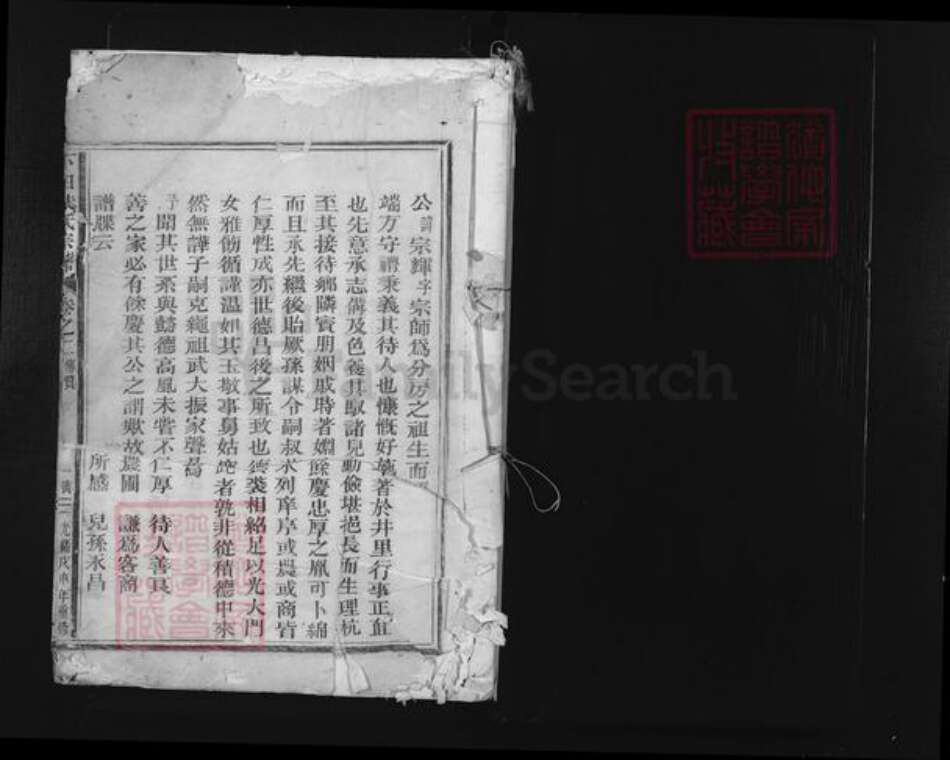 公諱宗輝字宗師為分房之祖生而
端方守禮秉義其待人也慷慨好 著於井里行事正直
也先意承志備及色養其馭諸兒勤儉堪挹長而生理
至其接待鄉隣賓朋姻戚時著嫺 餘慶忠厚之胤可卜綿
而且承先繼後貽厥孫謀令嗣叔 列庠序或農或商皆
仁厚性成亦世德昌後之所致也 裘相紹足以光大門
女雅飭循謹溫如其玉敬事舅姑 者孰非從積德中來
然無譁子嗣克繩祖武大振家聲
予聞其世系與懿德高風未嘗不仁厚 待人善良
善之家必有餘慶其公之謂歟故農圃 謙為客商
譜牒云 所感 兒孫永昌
氏宗譜 卷之二 傳贊 光緒戊申年重修
FamilySearch
譜學會